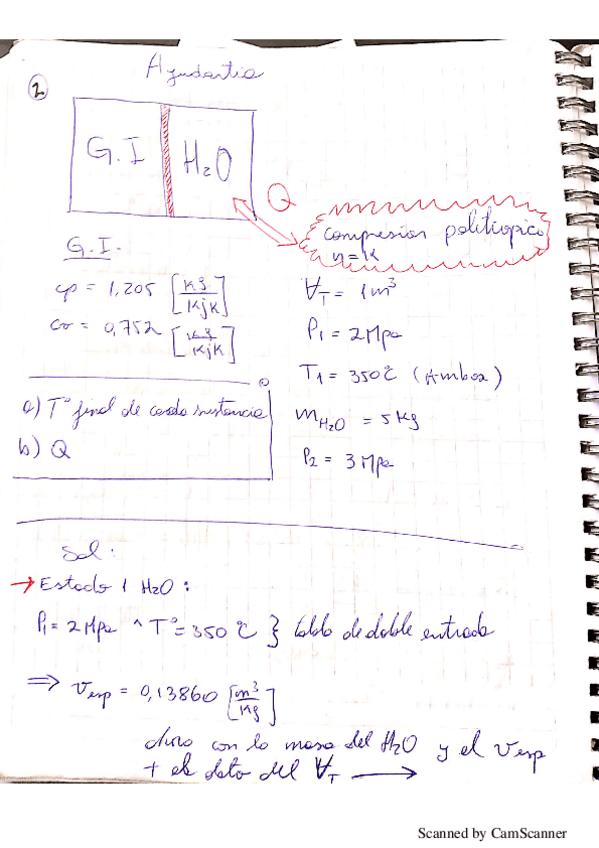 Ayudantia
2
G.I H2O
Q
compresion politropico
n=K
G.I.
cp = 1,205 [Kg/KjK]
cv = 0,752 [Kg/KjK]
∀T = 1m³
P1 = 2 Mpa
T1 = 350°C (Ambos)
mH2O = 5 Kg
P2 = 3 Mpa
a) T° final de cada sustancia
b) Q
Sol:
→ Estado 1 H2O:
P1 = 2 Mpa ^ T° = 350 °C } tabla de doble entrada
⇒ Vesp = 0,13860 [m³/Kg]
con la masa del H2O y el Vesp
+ el dato del ∀T →
Scanned by CamScanner